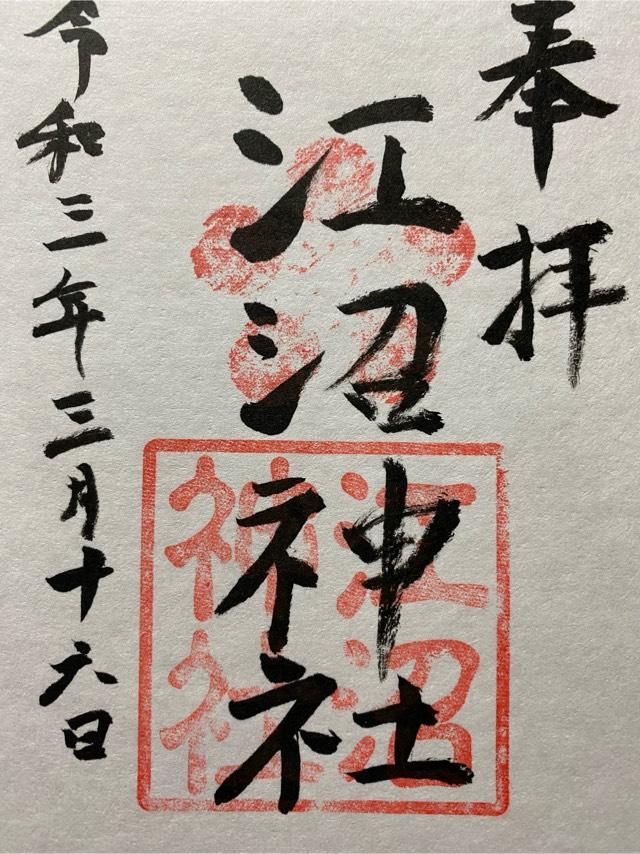 奉拝
江沼神社
江沼
神社
令和三年三月十六日